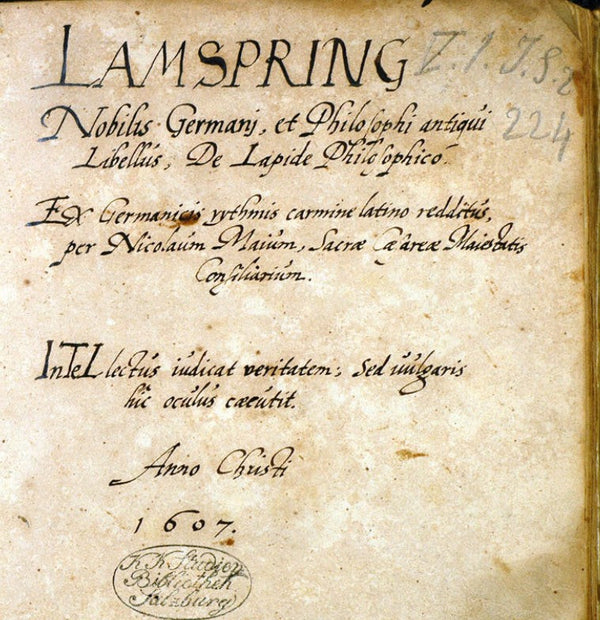 LAMSPRING V. 1. J. S. 2
224
Nobilis Germani, et Philosophi antiqui
Libellus, De Lapide Philosophico.
Ex Germanicis rythmis carmine latino redditus,
per Nicolaum Maium, Sacræ Cæsareæ Maiestatis
Consiliarium.
InTeLlectus iudicat veritatem; Sed vulgaris
hic oculus cæcutit.
Anno Christi
1607.
K.K. Studien
Bibliothek
Salzburg